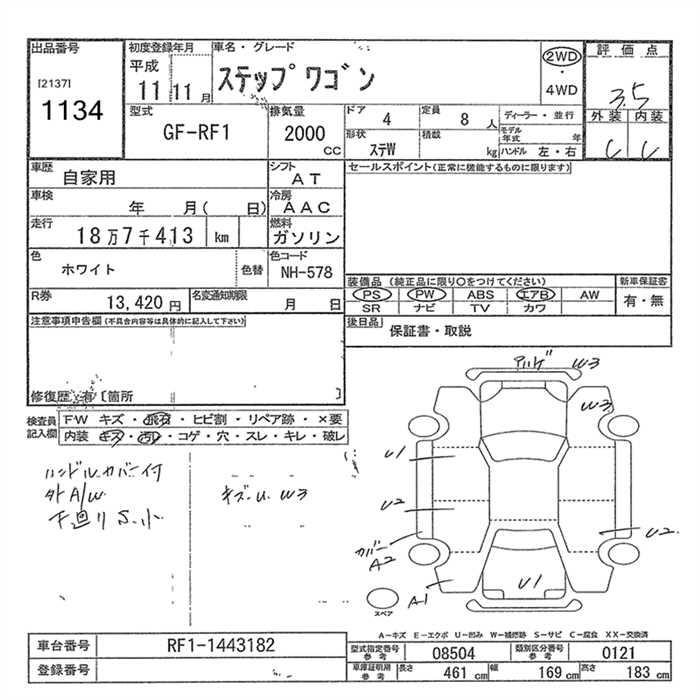 出品番号
[2137]
1134
初度登録年月
平成
11 11月
車名・グレード
ステップワゴン
2WD
・
4WD
評価点
3.5
外装 内装
C C
型式
GF-RF1
排気量
2000
CC
ドア 4
定員 8 人
ディーラー・並行
形状 ステW
積載 kg
モデル年式 年
ハンドル 左・右
車歴 自家用
シフト AT
セールスポイント(正常に機能するものに限ります)
車検 年 月( 日)
冷房 AAC
走行 18万7千413 km
燃料 ガソリン
色 ホワイト
色替
色コード NH-578
装備品 (純正品に限り○をつけてください)
新車保証書
PS PW ABS エアB AW
SR ナビ TV カワ
有・無
R券 13,420 円
名変通知期限 月 日
後日品 保証書・取説
注意事項申告欄(不具合内容等は具体的に記入して下さい)
修復歴 有 [箇所 ]
検査員記入欄
FW キズ・飛石・ヒビ割・リペア跡・×要
内装 キズ・汚レ・コゲ・穴・スレ・キレ・破レ
ハンドルカバー付
外A/W
下廻りS.小
キズ.U. W3
W3
W3
U1
U2
U2
カバー
A2
A1
U1
スペア
A-キズ E-エクボ U-凹み W-補修跡 S-サビ C-腐食 XX-交換済
車台番号 RF1-1443182
登録番号
型式指定番号 参考 08504
類別区分番号 参考 0121
車庫証明用 参考 長さ 461 cm 幅 169 cm 高さ 183 cm